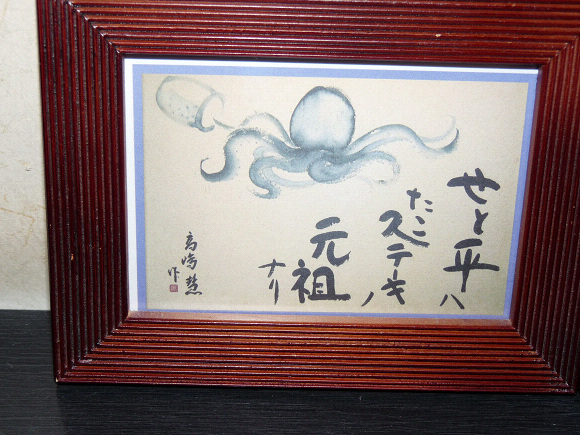 せと平ハ
たこステーキノ
元祖
ナリ
高嶋
作